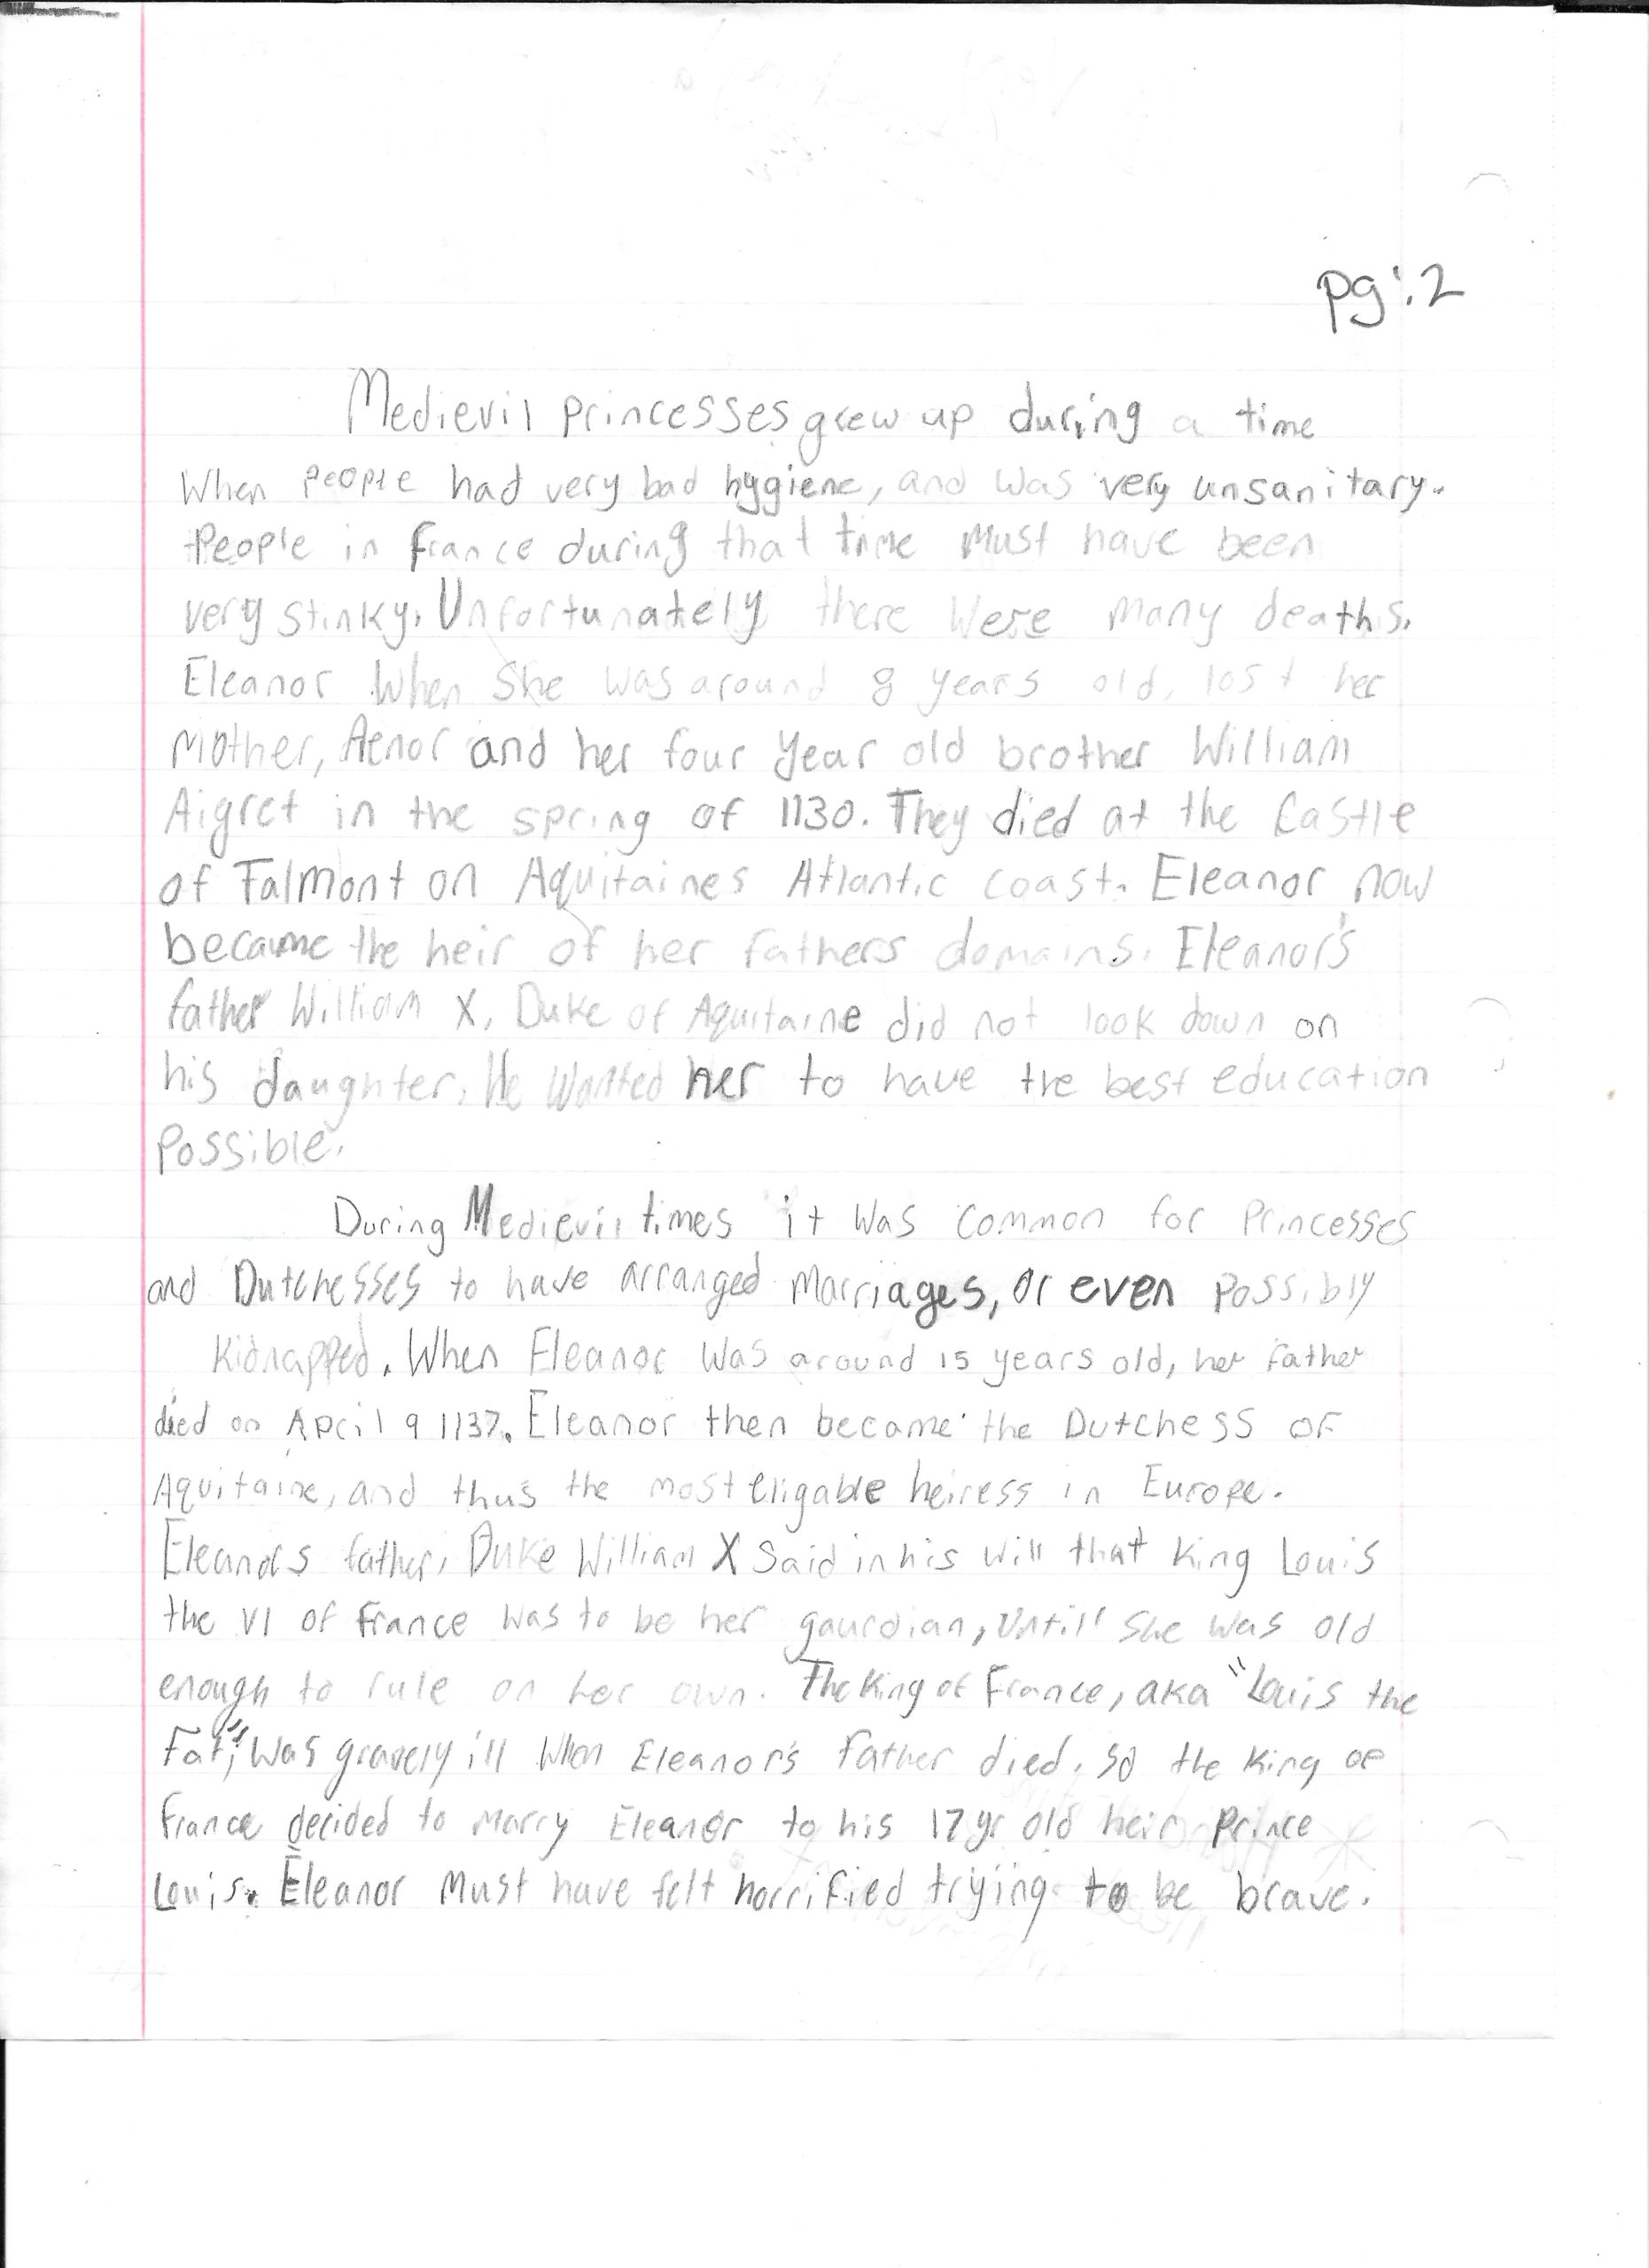 pg:2
Medievil princesses grew up during a time
When people had very bad hygiene, and was very unsanitary.
People in france during that time Must have been
very stinky. Unfortunately there were many deaths.
Eleanor When She was around 8 years old, lost her
Mother, Aenor and her four year old brother William
Aigret in the spring of 1130. They died at the Castle
of Talmont on Aquitaines Atlantic coast. Eleanor now
became the heir of her fathers domains. Eleanor's
father William X, Duke of Aquitaine did not look down on
his daughter. He Wanted her to have the best education
Possible.
During Medievil times it Was common for Princesses
and Dutchesses to have arranged Marriages, or even possibly
Kidnapped. When Eleanor Was around 15 years old, her father
died on April 9 1137. Eleanor then became the Dutchess of
Aquitaine, and thus the most eligable heiress in Europe.
Eleanors father, Duke William X Said in his will that King Louis
the VI of France was to be her gaurdian, Untill She was old
enough to rule on her own. The King of France, aka "Louis the
Fat", was gravely ill When Eleanor's father died. So the King of
France decided to marry Eleanor to his 17 yr old heir Prince
Louis. Eleanor Must have felt horrified trying to be brave.